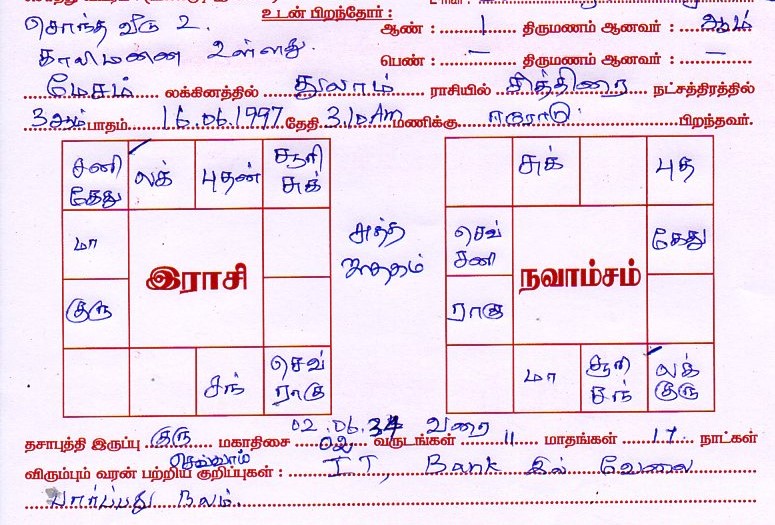 சொந்த வீடு 2. உடன் பிறந்தோர் :
ஆண் : 1 திருமணம் ஆனவர் : ஆம்
காலிமனை உள்ளது.
பெண் : — திருமணம் ஆனவர் : —
மேசம் லக்கினத்தில் துலாம் ராசியில் சித்திரை நட்சத்திரத்தில்
3ஆம் பாதம் 16.06.1997 தேதி 3.10 AM மணிக்கு ஈரோடு பிறந்தவர்.
சனி கேது லக் புதன் சூரி சுக்
மா
குரு
இராசி
சந் செவ் ராகு
சுத்த ஜாதகம்
சுக் புத
செவ் சனி கேது
ராகு
நவாம்சம்
மா சூரி சந் லக் குரு
02.06.34 வரை
தசாபுத்தி இருப்பு குரு மகாதிசை 02 வருடங்கள் 11 மாதங்கள் 17 நாட்கள்
செவ்வாய்
விரும்பும் வரன் பற்றிய குறிப்புகள் : IT, Bank இல் வேலை
பார்ப்பது நலம்.